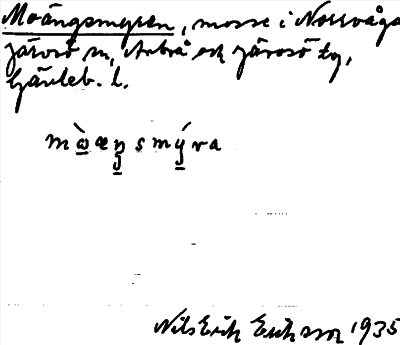 Moängsmyren, mosse i Norrvåga
Järvsö sn, Arbrå och Järvsö tg,
Gävleb. l.
mὼæŋsmýra
Nils Erik Eriksson 1935